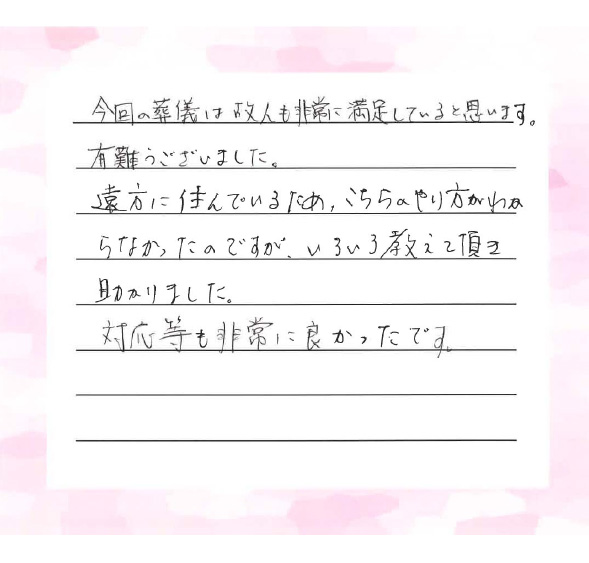 今回の葬儀は故人も非常に満足していると思います。
有難うございました。
遠方に住んでいるため、こちらのやり方がわか
らなかったのですが、いろいろ教えて頂き
助かりました。
対応等も非常に良かったです。